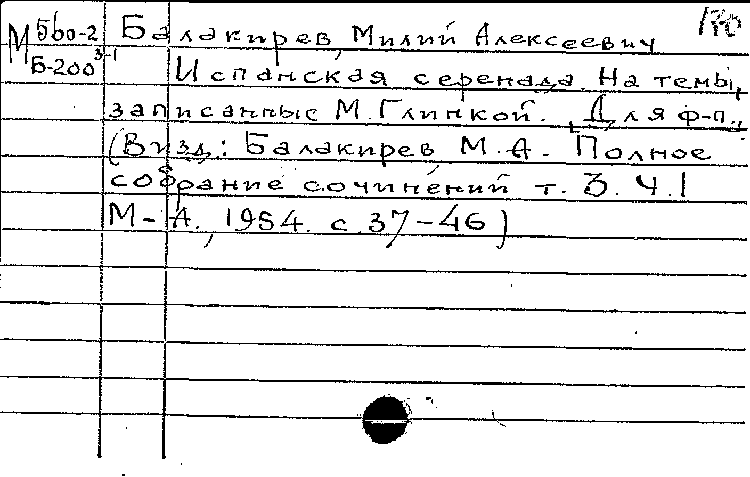 М 560-2 Балакирев, Милий Алексеевич
Б-200 3-1 Испанская серенада. На темы,
записанные М. Глинкой. Для ф-п.,
(В изд.: Балакирев М.А. Полное
собрание сочинений т. 3. ч. 1
М-Л., 1954. с. 37-46)